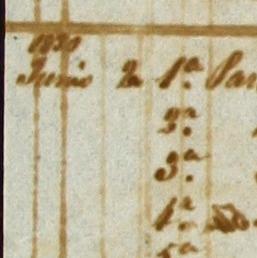 1830
Junio 2 1ª
2ª
3ª
4ª
5ª